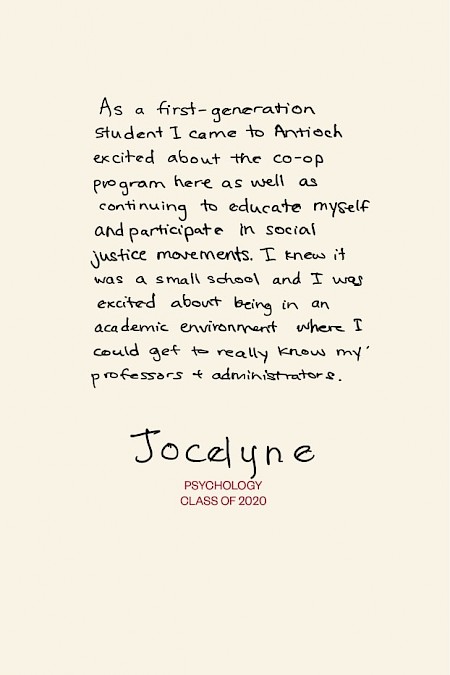 As a first-generation
student I came to Antioch
excited about the co-op
program here as well as
continuing to educate myself
and participate in social
justice movements. I knew it
was a small school and I was
excited about being in an
academic environment where I
could get to really know my
professors + administrators.
Jocelyne
PSYCHOLOGY
CLASS OF 2020